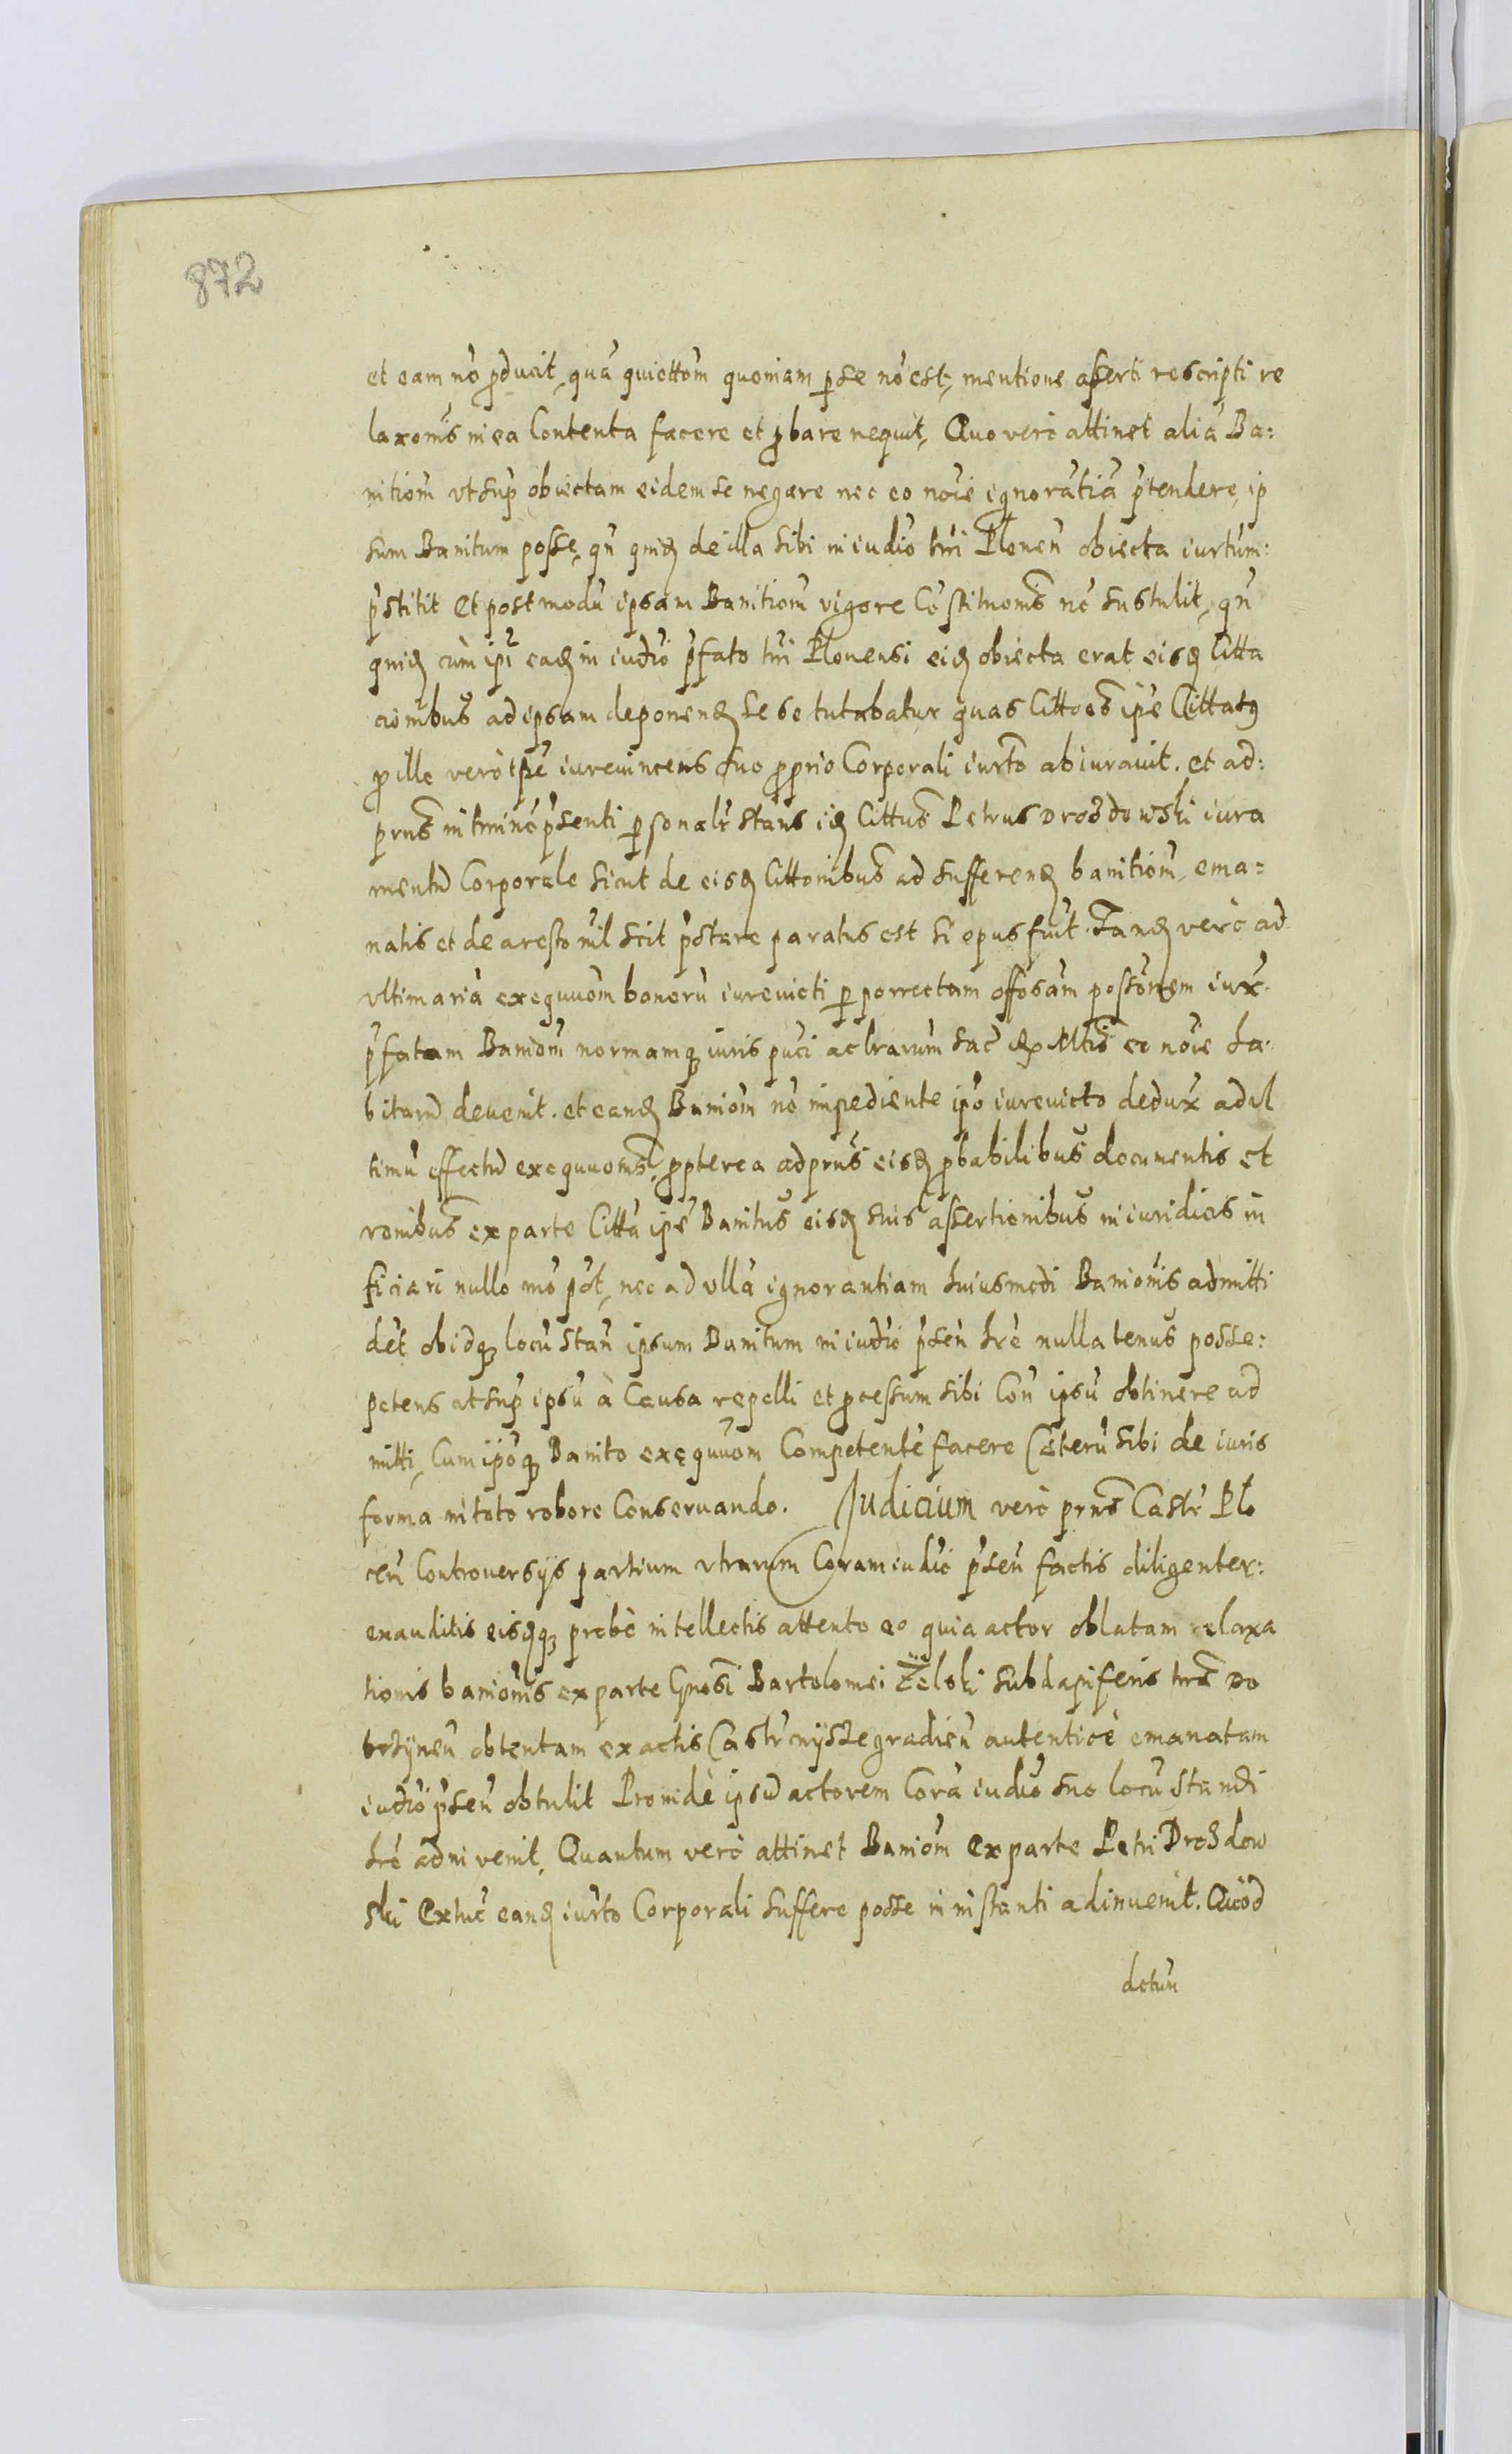 872
et eam nō ꝓducit, quā quiettōm quoniam ꝑ se nō est, mentione asserti rescripti re
laxoniš in ea Contenta facere et ꝓbare nequit, Quo verò attinet aliā Ba:
nitiom̄ vt sup̄ obiectam eidem se negare nec eo noīe ignorātiā p̄tendere, ip
sum Banitum posse, qn̄ quidē de illa sibi in iudīo trrī Plonen̄ obiecta iurtūm:
p̄stitit et post modū ipsam Banitiom̄ vigore Cōstituonis̄ nō sustulit, qn̄
quidē cùm ipī eadē in iudīo p̄fato trrī Plonensi eidē obiecta erat eisdē Citta
cionibus̄ ad ipsam deponendē se se tutabatur quas Cittoēs ipē Cittatꝯ
ꝓ illo verò tpē iurevincens suo ꝓprio Corporali iurtō abiurauit. et ad:
prns̄ in tmīno p̄senti ꝑsonalr̄ stans idē Cittus̄ Petrus Drosdowski iura
mentū Corporale sicut de eisdē Cittonibus̄ ad sufferendē banitiom̄, ema=
natis et de aresto nīl scit p̄stare paratus est si opus fuīt. Tandē verò ad
vltimariā exequuōm bonorū iurevicti ꝑ porrectam offosām possōnem iux̄.
p̄fatam Banioṁ normamqꝫ iuris puci ac lrarum̄ Sac̄ Rꝫ Mttis̄ eo noīe ha.
bitarū devenit. et eandē Baniom̄ nō impediente ipō iurevicto dedux̄ ad ul
timū effectū exequuonis̄, ꝓpterea ad prns̄ eisdē ꝓbabilibus̄ documentis et
ronibus̄ ex parte Cittā ipē Banitus̄ eisdē suis assertionibus̄ iniuridicis in
ficiari nullo mō pōt, nec ad vllā ignorantiam huiusmodi Banionis̄ admitti
dēt obidqꝫ locū stan̄ ipsum Banitum in iudīo p̄sen̄ hrē nulla tenus̄ posse:
petens vt sup̄ ipsū à Causa repelli et ꝓcessum sibi Con̄ ipsū obtinere ad
mitti, Cum ipōqꝫ Banito exęquuōm Competentē facere Cæterū sibi de iuris
forma in toto robore Conseruando. Judicium verò prns̄ Castr̄ Plo
cen̄ Controuersijs partium vtrarum Coram iudīo p̄sen̄ factis diligenter:
exauditis eisdēqꝫ probè intellectis attento eo quia actor oblatam relaxa
tionis banionis̄ ex parte Gnosī Bartolomei Żelski subdapiferis trrē Do
brzÿnen̄ obtentam ex actis Castr̄ Wyszegradien̄ autenticè emanatam
iudīo p̄sen̄ obtulit Proindè ipsū actorem Corā iudīo suo locū standi
hrē adinvenit, Quantum verò attinet Baniom̄ ex parte Petri Drosdow
ski Extūc eandē iurto Corporali suffere posse in instanti adinuenit. Quòd